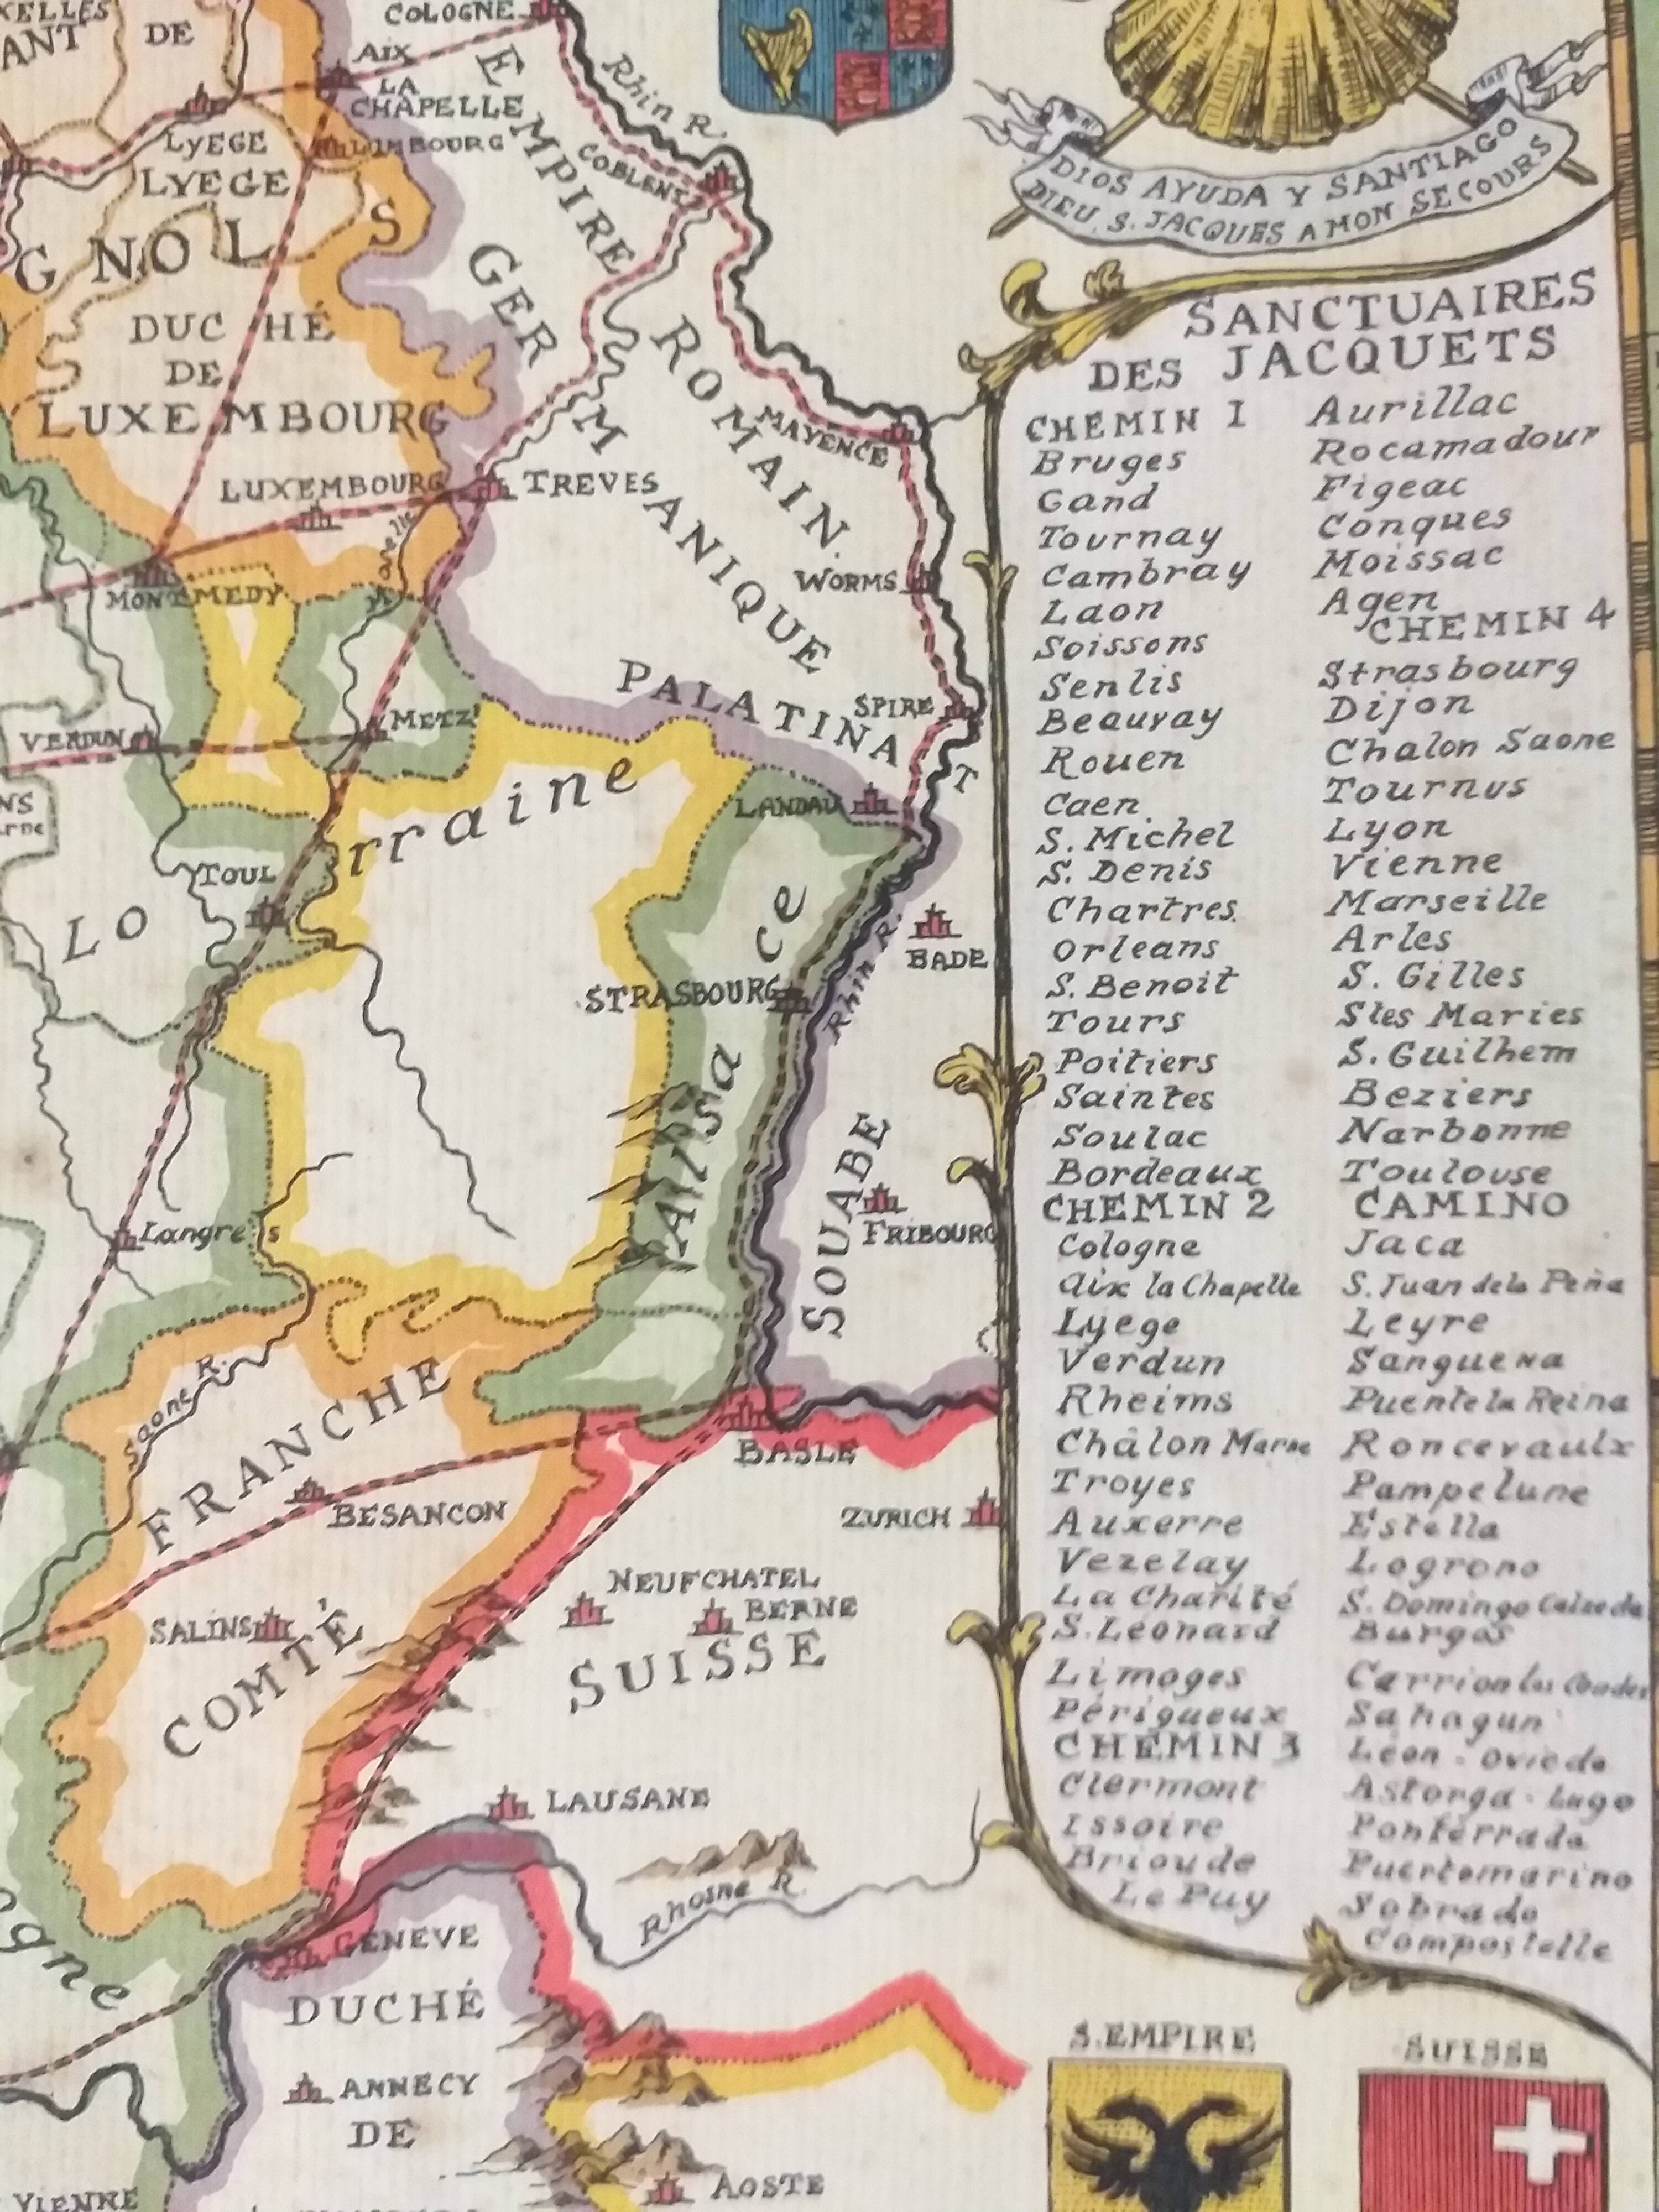 COLOGNE
DE
AIX
LA
CHAPELLE
LYEGE
LIMBOURG
LYEGE
COBLENT
Rhin R.
EMPIRE
GERMANIQUE
ROMAIN.
GNOLS
DUCHÉ
DE
LUXEMBOURG
LUXEMBOURG
TREVES
MAYENCE
MONTMEDY
WORMS
PALATINAT
SPIRE
VERDUN
METZ
LANDAU
Lorraine
TOUL
BADE
STRASBOURG
Rhin R.
l'Alsace
SOUABE
FRIBOURG
Langres
Saone R.
FRANCHE
COMTÉ
BASLE
BESANCON
ZURICH
NEUFCHATEL
BERNE
SALINS
SUISSE
LAUSANE
Rhosne R.
GENEVE
DUCHÉ
ANNECY
DE
AOSTE
VIENNE
DIOS AYUDA Y SANTIAGO
DIEU, S. JACQUES A MON SECOURS
SANCTUAIRES
DES JACQUETS
CHEMIN 1
Bruges
Gand
Tournay
Cambray
Laon
Soissons
Senlis
Beauvay
Rouen
Caen
S. Michel
S. Denis
Chartres.
Orleans
S. Benoit
Tours
Poitiers
Saintes
Soulac
Bordeaux
CHEMIN 2
Cologne
Aix la Chapelle
Lyege
Verdun
Rheims
Châlon Marne
Troyes
Auxerre
Vezelay
La Charité
S. Leonard
Limoges
Périgueux
CHEMIN 3
Clermont
Issoire
Brioude
Le Puy
Aurillac
Rocamadour
Figeac
Conques
Moissac
Agen
CHEMIN 4
Strasbourg
Dijon
Chalon Saone
Tournus
Lyon
Vienne
Marseille
Arles
S. Gilles
Stes Maries
S. Guilhem
Beziers
Narbonne
Toulouse
CAMINO
Jaca
S. Juan de la Peña
Leyre
Sanguena
Puente la Reina
Roncevaulx
Pampelune
Estella
Logrono
S. Domingo Calzada
Burgos
Carrion los Condes
Sahagun
Léon - Oviedo
Astorga - Lugo
Ponferrada
Puertomarino
Sobrado
Compostelle
S. EMPIRE
SUISSE